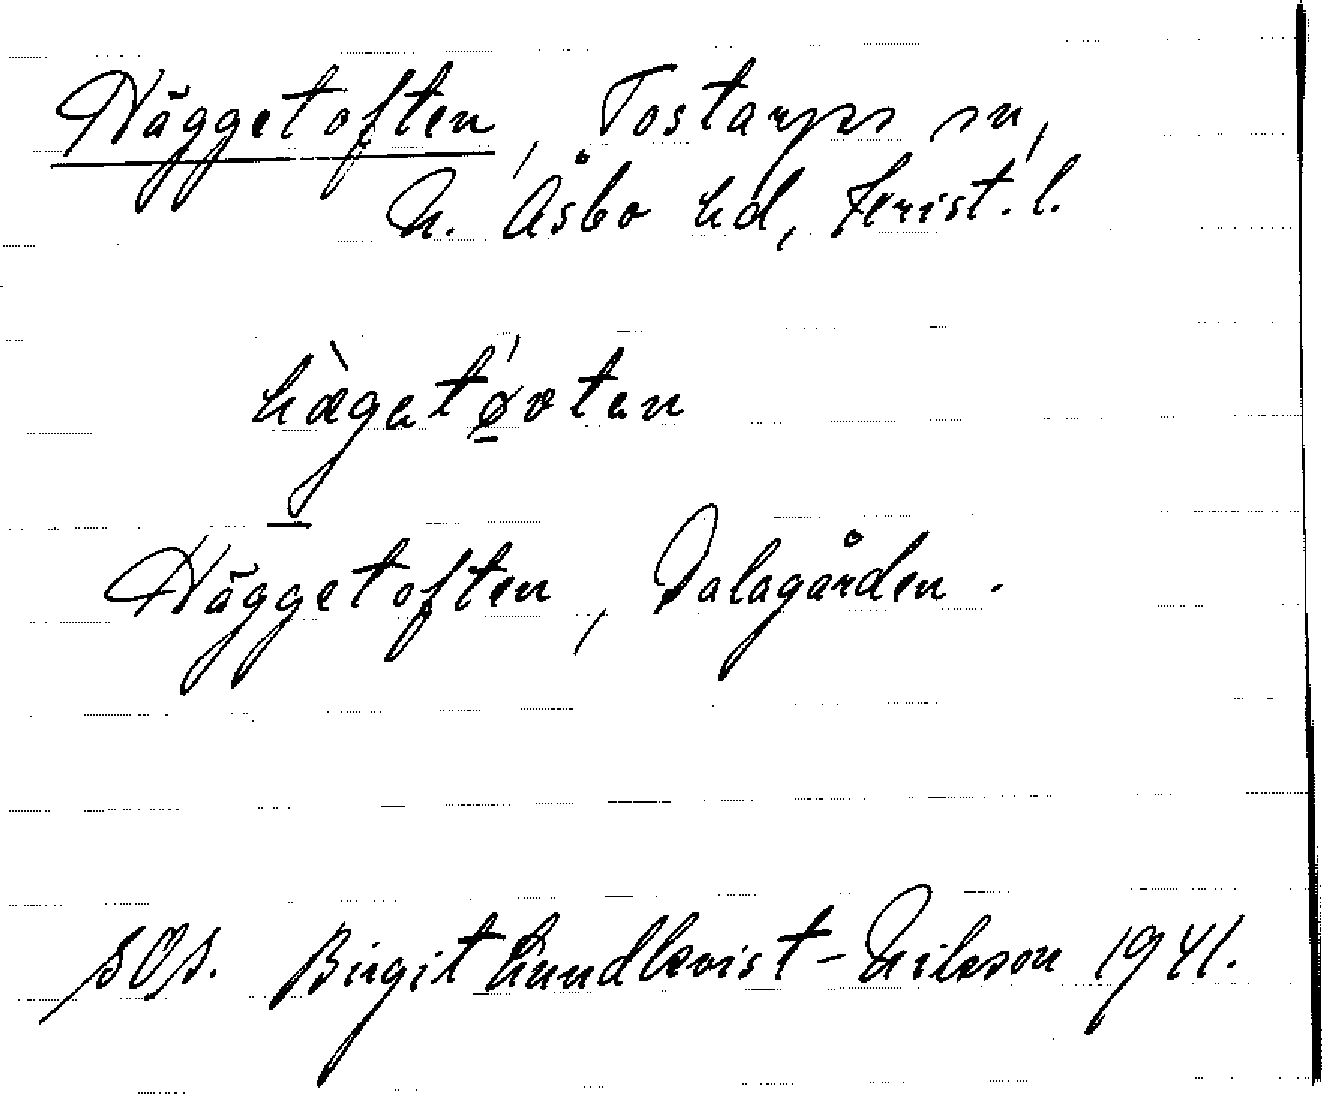 Häggetoften, Tostarps sn,
N. Åsbo hd, Krist. l.
hægatøvtan
Häggetoften, Dalagården.
SOS. Birgit Lundkvist-Nilsson 1941.